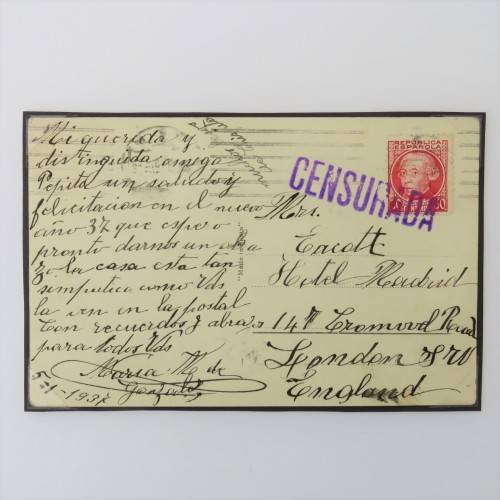 Mi querida y
distinguida amiga
Pepita un saludo y
felicitacion en el nuevo
año 37 que espero
pronto darnos un abra
zo la casa esta tan
simpatica como Vds
la ven en la postal
Con recuerdos y abrazos
para todos Vds
María M. de
5-1-1937
REPUBLICA
ESPAÑOLA
30
CENSURADA
Mrs.
Hotel Madrid
147 Cromwell Road
London S W
England